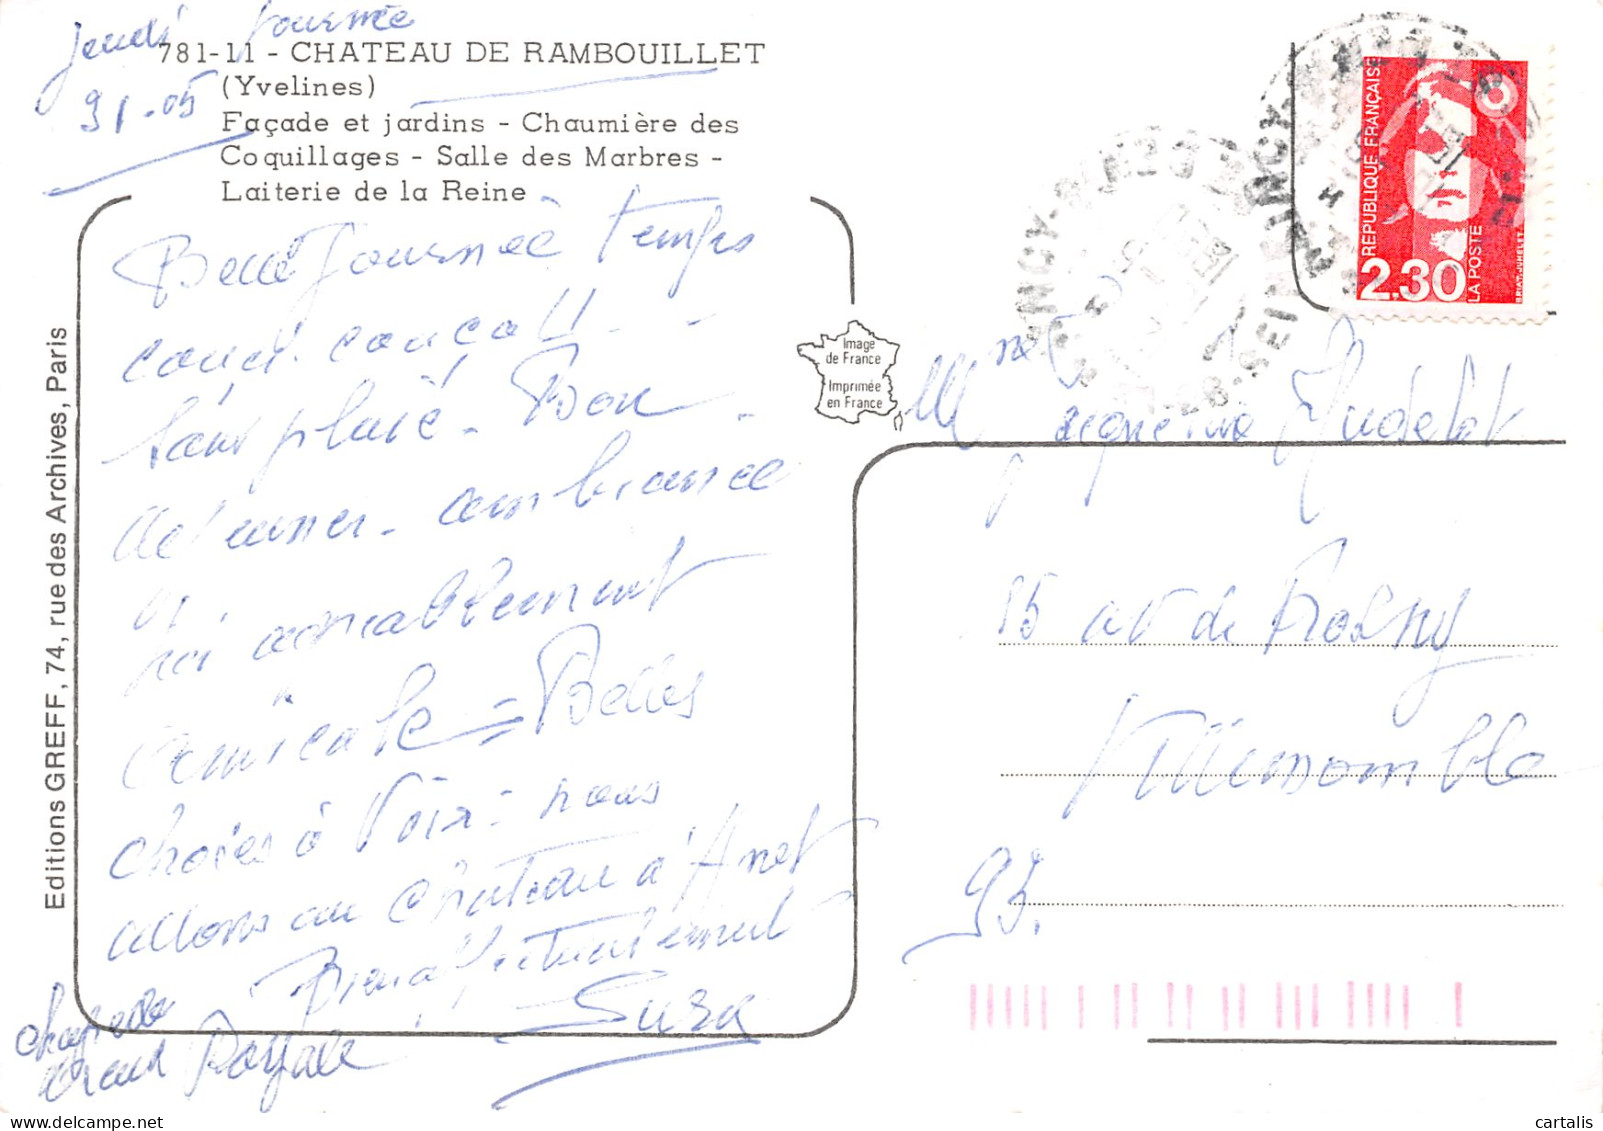 jeudi journée
91-05
781-11 - CHATEAU DE RAMBOUILLET
(Yvelines)
Façade et jardins - Chaumière des
Coquillages - Salle des Marbres -
Laiterie de la Reine
Belle journée temps
couci-couça!!
sans pluie. Bon
déjeuner. ambiance
amicale = Belles
choses à voir = nous
allons au château d'Anet
Bien affectueusement
Suza
Chapelle
Royale
Editions GREFF, 74, rue des Archives, Paris
Image
de France
Imprimée
en France
REPUBLIQUE FRANÇAISE
2,30
LA POSTE
BRIAT-JUMELET
Mme
15 av de Rosny
Villemomble
93.
cartalis.com